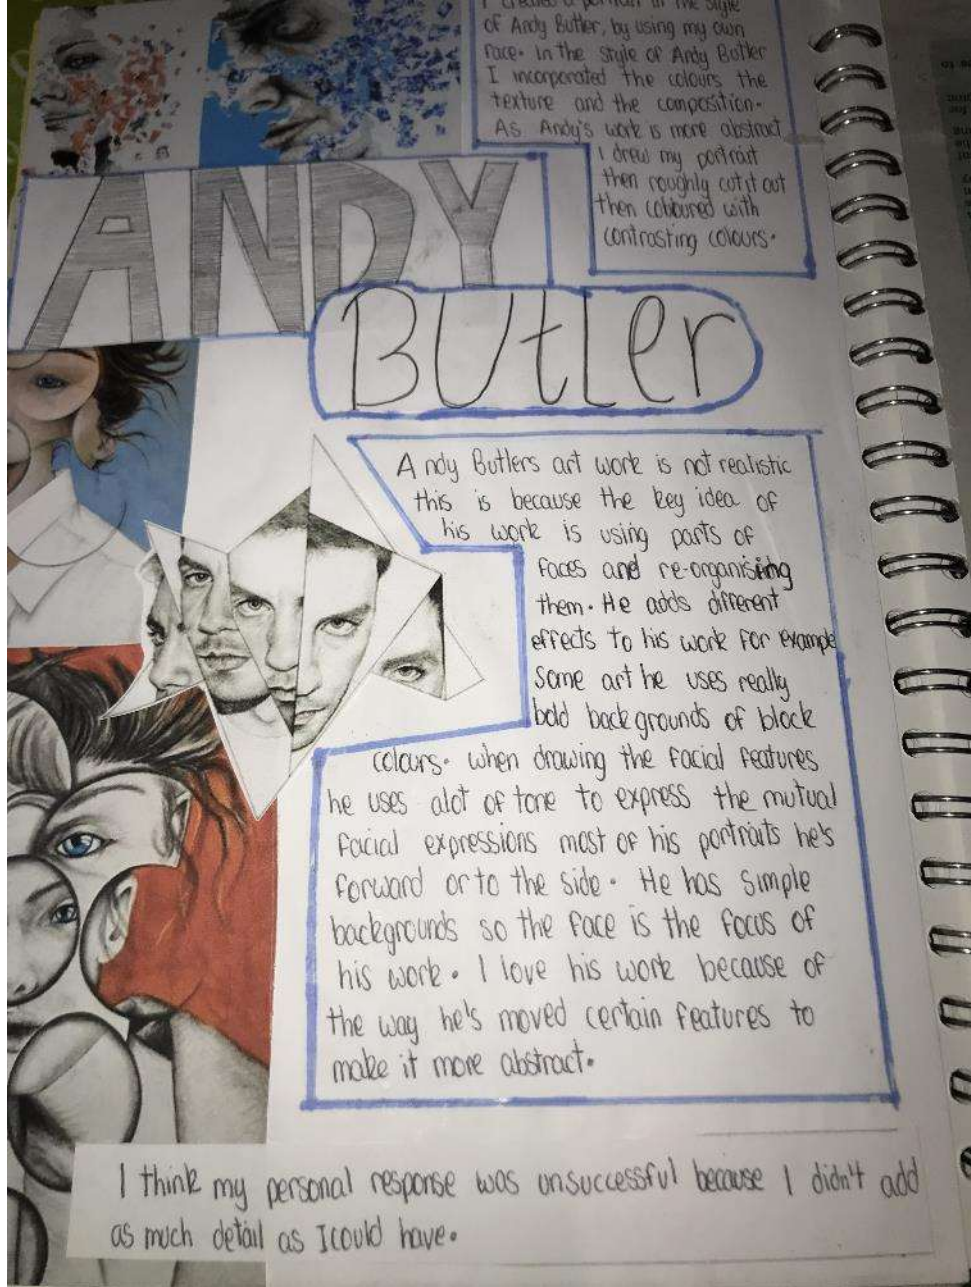 I created a portrait in the style
of Andy Butler, by using my own
face. In the style of Andy Butler
I incorporated the colours the
texture and the composition.
As Andy's work is more abstract
I drew my portrait
then roughly cut it out
then coloured with
contrasting colours.
ANDY
BUtLer
Andy Butlers art work is not realistic
this is because the key idea of
his work is using parts of
faces and re-organising
them. He adds different
effects to his work for example
Some art he uses really
bold backgrounds of block
colours. when drawing the facial features
he uses alot of tone to express the mutual
facial expressions most of his portraits he's
forward or to the side. He has simple
backgrounds so the face is the focus of
his work. I love his work because of
the way he's moved certain features to
make it more abstract.
I think my personal response was unsuccessful because I didn't add
as much detail as I could have.